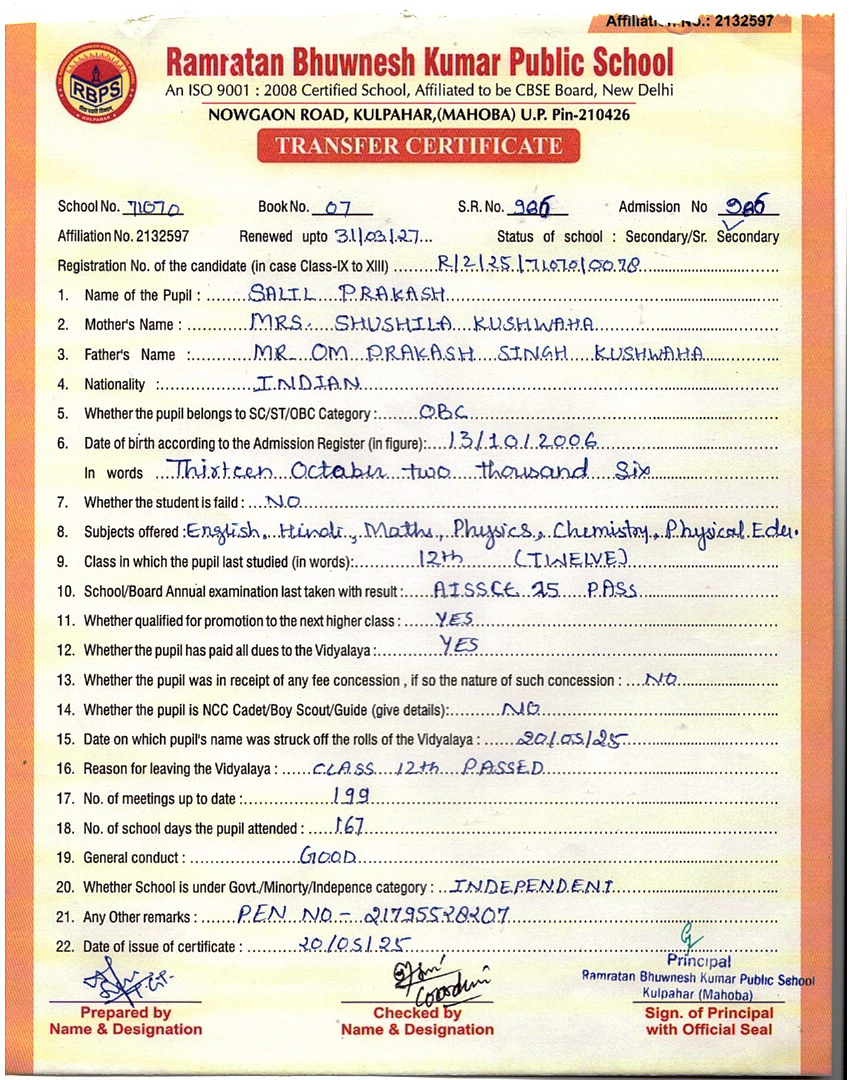 Affiliation No.: 2132597
Ramratan Bhuwnesh Kumar Public School
RBPS
KULPAHAR
An ISO 9001 : 2008 Certified School, Affiliated to be CBSE Board, New Delhi
NOWGAON ROAD, KULPAHAR,(MAHOBA) U.P. Pin-210426
TRANSFER CERTIFICATE
School No. 71070 Book No. 07 S.R. No. 986 Admission No 986
Affiliation No. 2132597 Renewed upto 31/03/27... Status of school : Secondary/Sr. Secondary
Registration No. of the candidate (in case Class-IX to XIII) ........R/2/25/71070/0078
1. Name of the Pupil : SALIL PRAKASH
2. Mother's Name : MRS. SHUSHILA KUSHWAHA
3. Father's Name : MR OM PRAKASH SINGH KUSHWAHA
4. Nationality : INDIAN
5. Whether the pupil belongs to SC/ST/OBC Category : OBC
6. Date of birth according to the Admission Register (in figure): 13/10/2006
In words Thirteen October two thousand Six
7. Whether the student is faild : NO
8. Subjects offered : English, Hindi, Maths, Physics, Chemistry, Physical Edu.
9. Class in which the pupil last studied (in words): 12th (TWELVE)
10. School/Board Annual examination last taken with result : AISSCE 25 PASS
11. Whether qualified for promotion to the next higher class : YES
12. Whether the pupil has paid all dues to the Vidyalaya : YES
13. Whether the pupil was in receipt of any fee concession , if so the nature of such concession : NO
14. Whether the pupil is NCC Cadet/Boy Scout/Guide (give details): NO
15. Date on which pupil's name was struck off the rolls of the Vidyalaya : 20/05/25
16. Reason for leaving the Vidyalaya : CLASS 12th PASSED
17. No. of meetings up to date : 199
18. No. of school days the pupil attended : 167
19. General conduct : GOOD
20. Whether School is under Govt./Minorty/Indepence category : INDEPENDENT
21. Any Other remarks : PEN NO - 21795528207
22. Date of issue of certificate : 20/05/25
Principal
Ramratan Bhuwnesh Kumar Public School
Kulpahar (Mahoba)
Prepared by Checked by Sign. of Principal
Name & Designation Name & Designation with Official Seal